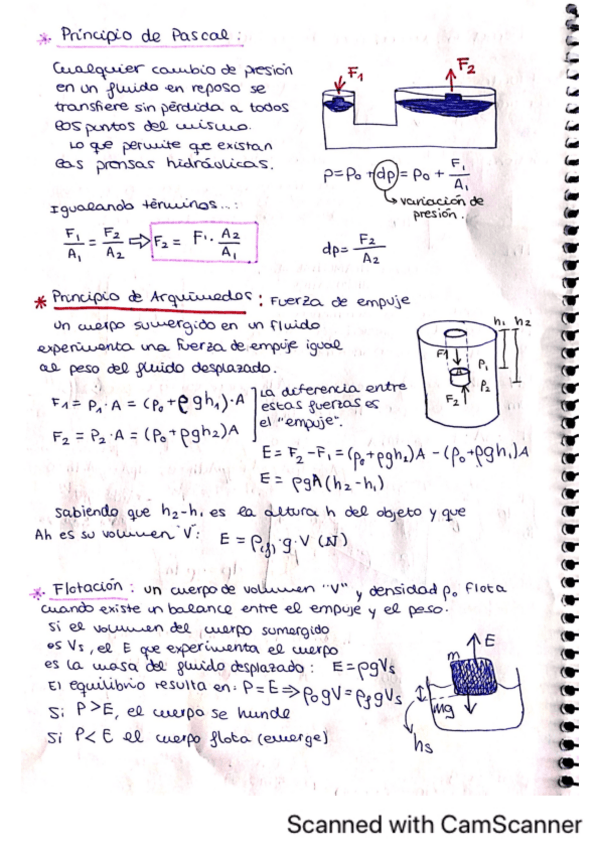 * Principio de Pascal:
Cualquier cambio de presión
en un fluido en reposo se
transfiere sin pérdida a todos
los puntos del mismo.
Lo que permite qe existan
las prensas hidráulicas.
F₁ F₂
p=p₀+dp=p₀+F₁/A₁
variación de
presión.
Igualando términos...:
F₁/A₁ = F₂/A₂ ⇒ F₂ = F₁·A₂/A₁
dp= F₂/A₂
* Principio de Arquímedes: Fuerza de empuje
Un cuerpo sumergido en un fluido
experimenta una fuerza de empuje igual
al peso del fluido desplazado.
h₁ h₂
F1 P₁
P₂
F₂
F₁= P₁·A = (P₀+ρgh₁)·A
F₂ = P₂·A = (P₀+ρgh₂)A
La diferencia entre
estas fuerzas es
el "empuje".
E = F₂-F₁=(P₀+ρgh₂)A -(P₀+ρgh₁)A
E = ρgA(h₂-h₁)
Sabiendo que h₂-h₁ es la altura h del objeto y que
Ah es su volumen "V": E = ρ(f)·g·V (N)
* Flotación: un cuerpo de volumen "V" y densidad ρ₀ flota
cuando existe un balance entre el empuje y el peso.
Si el volumen del cuerpo sumergido
es Vs, el E que experimenta el cuerpo
es la masa del fluido desplazado: E=ρgVs
El equilibrio resulta en: P=E⇒ρ₀gV=ρfgVs
Si P>E, el cuerpo se hunde
Si P<E el cuerpo flota (emerge)
E
m
mg
hs
Scanned with CamScanner